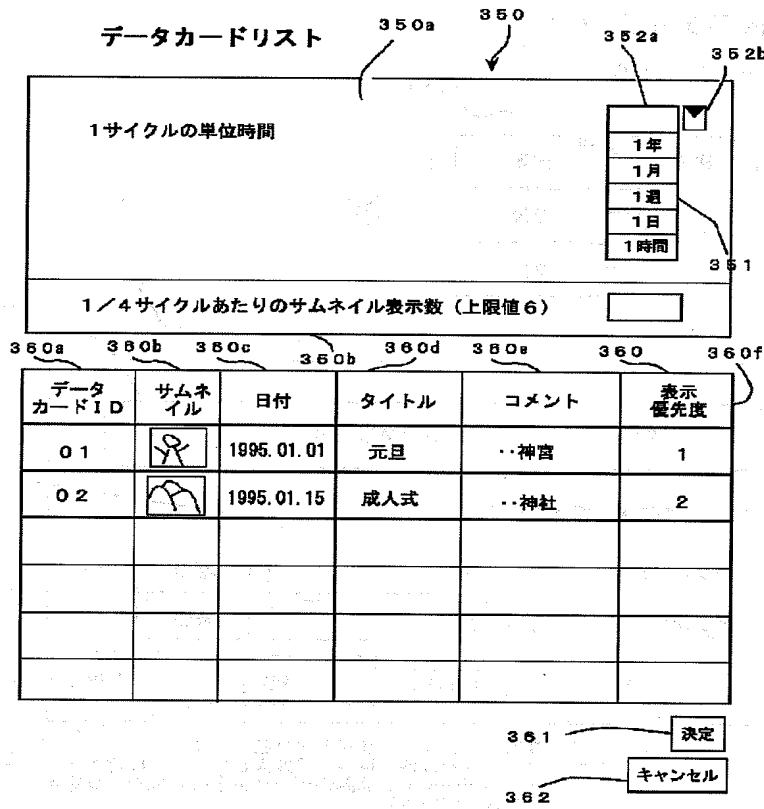 データカードリスト
350a
350
352a
352b
1サイクルの単位時間
1年
1月
1週
1日
1時間
351
1/4サイクルあたりのサムネイル表示数(上限値6)
360a
360b
360c
350b
360d
360e
360
360f
データカードID
サムネイル
日付
タイトル
コメント
表示優先度
01
1995.01.01
元旦
・・神宮
1
02
1995.01.15
成人式
・・神社
2
361
決定
キャンセル
362